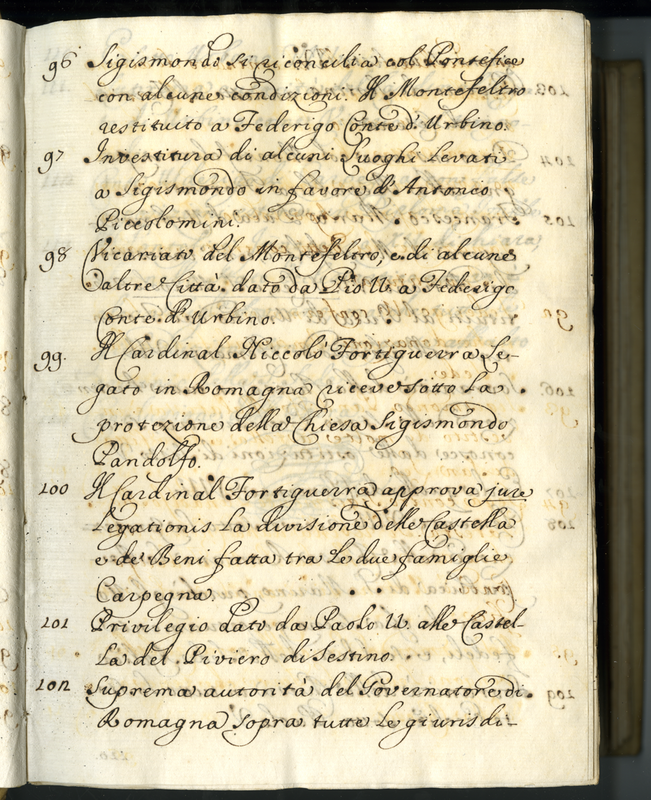 96 Sigismondo si riconcilia col Pontefice
con alcune condizioni. Il Montefeltro
restituito a Federigo Conte d'Urbino.
97 Investitura di alcuni Luoghi levati
a Sigismondo in favore d'Antonio
Piccolomini.
98 Vicariato del Montefeltro, e di alcune
altre Città dato da Pio II. a Federigo
Conte d'Urbino.
99. Il Cardinal Niccolò Fortiguerra Le-
gato in Romagna riceve sotto la
protezione della Chiesa Sigismondo
Pandolfo.
100 Il Cardinal Fortiguerra approva jure
Legationis la divisione delle Castella
e de Beni fatta tra le due famiglie
Carpegna.
101 Privilegio dato da Paolo II. alle Castel-
la del Piviero di Sestino.
102 Suprema autorità del Governatore di
Romagna sopra tutte le giurisdi-